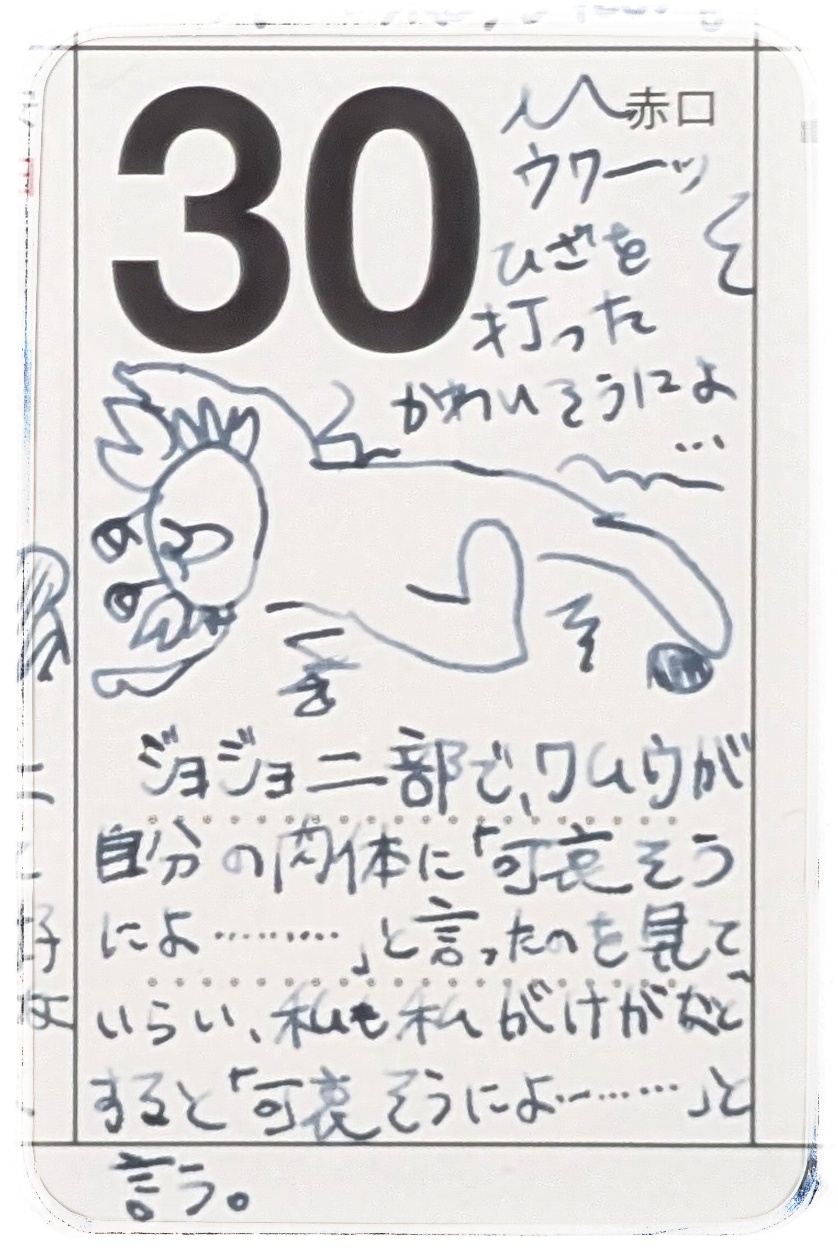 30
赤口
ウワーッ
ひざを
打った
かわいそうによ
…
ジョジョ二部で、ワムウが
自分の肉体に「可哀そう
によ………」と言ったのを見て
いらい、私も私がけがなど
すると「可哀そうによ………」と
言う。